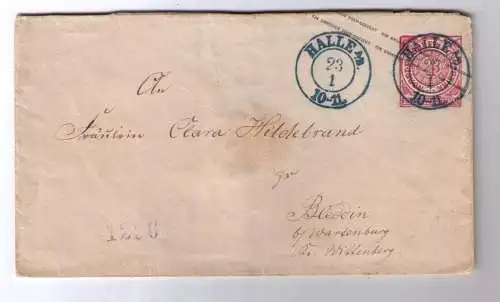 HALLE a/S.
23
1
10-11.
HALLE a/S.
23
1
10-11.
An
Fräulein Clara Hildebrand
pr
Bleddin
b/ Wartenburg
Kr. Wittenberg